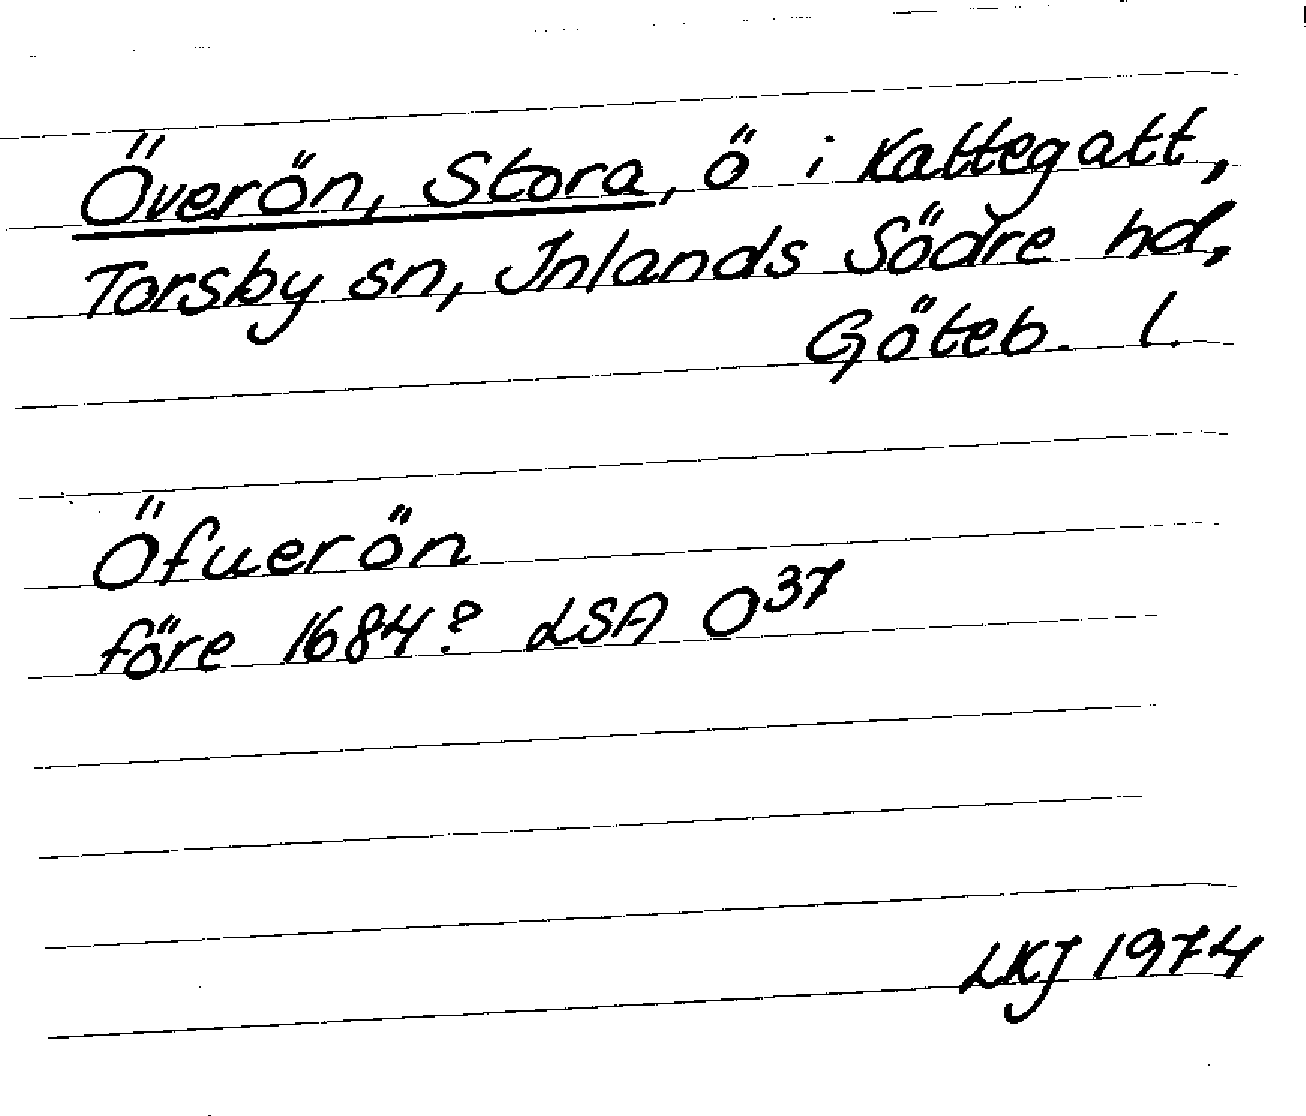 Överön, Stora, ö i Kattegatt,
Torsby sn, Inlands Södre hd,
Göteb. l.
Öfuerön
före 1684? LSA O37
LKJ 1974